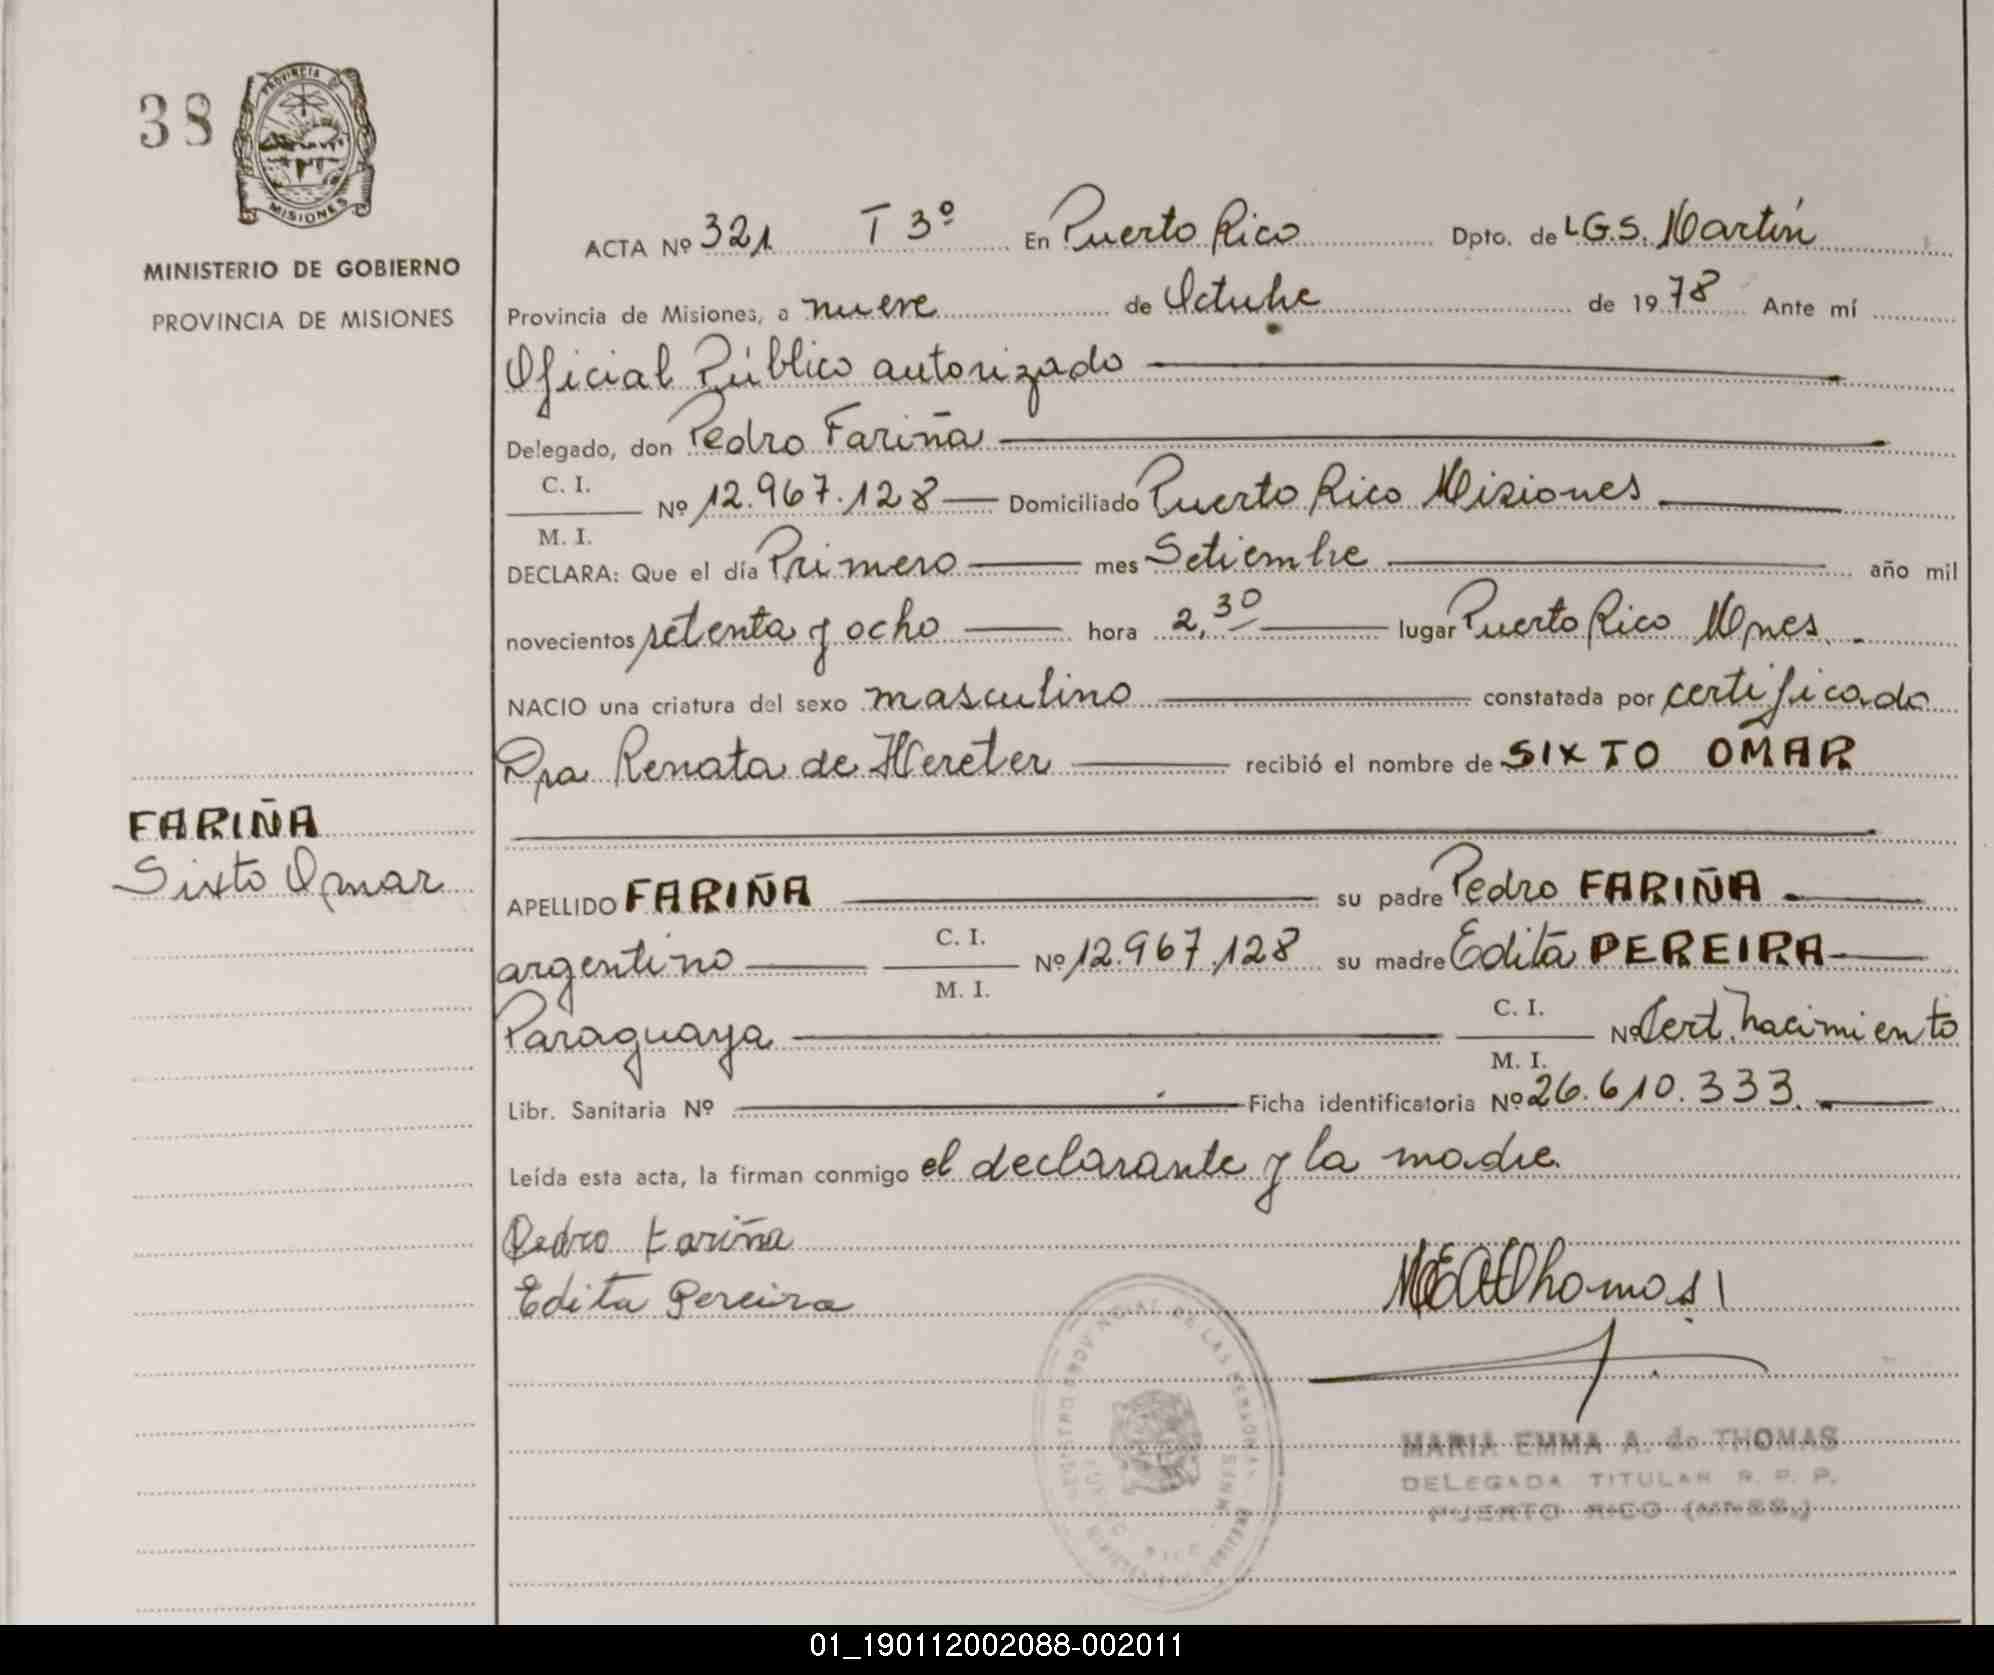 38
PROVINCIA DE
MISIONES
MINISTERIO DE GOBIERNO
PROVINCIA DE MISIONES
FARIÑA
Sixto Omar
ACTA Nº 321 T 3º En Puerto Rico Dpto. de L.G.S. Martín
Provincia de Misiones, a nueve de Octubre de 1978 Ante mí
Oficial Público autorizado
Delegado, don Pedro Fariña
C. I.
Nº 12.967.128 Domiciliado Puerto Rico Misiones
M. I.
DECLARA: Que el día Primero mes Setiembre año mil
novecientos setenta y ocho hora 2,30 lugar Puerto Rico Mnes.
NACIO una criatura del sexo masculino constatada por certificado
Dra Renata de Hereter recibió el nombre de SIXTO OMAR
APELLIDO FARIÑA su padre Pedro FARIÑA
argentino C. I. Nº 12.967.128 su madre Edita PEREIRA
M. I.
Paraguaya C. I. Nº Cert. nacimiento
M. I.
Libr. Sanitaria Nº Ficha identificatoria Nº 26.610.333.
Leída esta acta, la firman conmigo el declarante y la madre.
Pedro Fariña
Edita Pereira
MEAThomas
MARIA EMMA A. de THOMAS
DELEGADA TITULAR R. P. P.
PUERTO RICO (MNES.)
REGISTRO PROVINCIAL DE LAS PERSONAS
PUERTO RICO
01_190112002088-002011